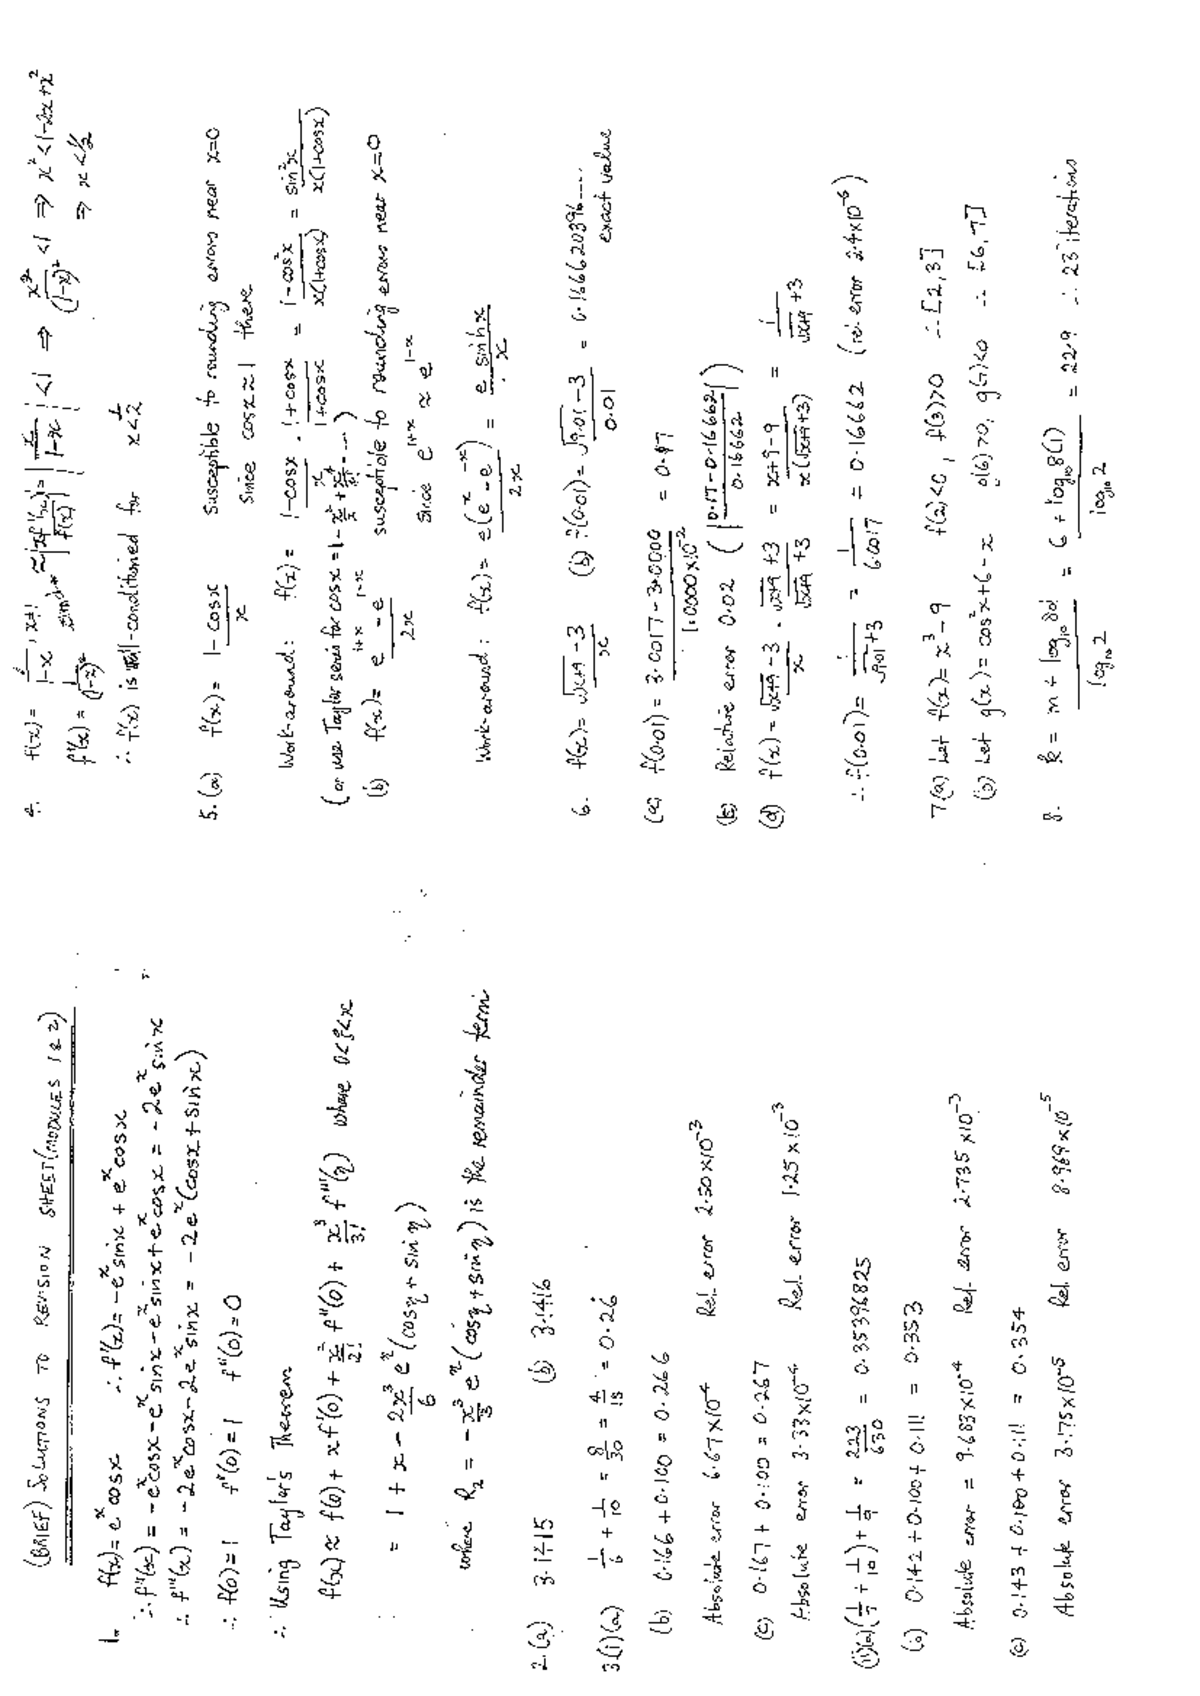 (BRIEF) SOLUTIONS TO REVISION SHEET (MODULES 1 & 2)
1. f(x) = e^x cos x ∴ f'(x) = -e^x sin x + e^x cos x
∴ f''(x) = -e^x cos x - e^x sin x - e^x sin x + e^x cos x = -2e^x sin x
∴ f'''(x) = -2e^x cos x - 2e^x sin x = -2e^x (cos x + sin x)
∴ f(0) = 1 f'(0) = 1 f''(0) = 0
∴ Using Taylor's Theorem
f(x) ≈ f(0) + x f'(0) + x²/2! f''(0) + x³/3! f'''(η) where 0<η<x
= 1 + x - 2x³/6 e^η (cos η + sin η)
where R₂ = -x³/3 e^η (cos η + sin η) is the remainder term
2.(a) 3.1415 (b) 3.1416
3(i)(a) 1/6 + 1/10 = 8/30 = 4/15 = 0.26
(b) 0.166 + 0.100 = 0.266
Absolute error 6.67×10⁻⁴ Rel. error 2.50×10⁻³
(c) 0.167 + 0.100 = 0.267
Absolute error 3.33×10⁻⁴ Rel. error 1.25×10⁻³
(ii)(a) (1/7 + 1/10) + 1/9 = 223/630 = 0.35396825
(b) 0.142 + 0.100 + 0.111 = 0.353
Absolute error = 9.683×10⁻⁴ Rel. error 2.735×10⁻³
(c) 0.143 + 0.100 + 0.111 = 0.354
Absolute error 3.175×10⁻⁵ Rel. error 8.969×10⁻⁵
4. f(x) = 1/(1-x), x≠1 |x f'(x)/f(x)| = |x/(1-x)| < 1 ⇒ x²/(1-x)² < 1 ⇒ x² < 1-2x+x²
f'(x) = 1/(1-x)² ⇒ x < 1/2
∴ f(x) is well-conditioned for x < 1/2
5.(a) f(x) = (1 - cos x)/x Susceptible to rounding errors near x=0
since cos x ≈ 1 there
Work-around: f(x) = (1-cos x)/x · (1+cos x)/(1+cos x) = (1-cos²x)/(x(1+cos x)) = sin²x/(x(1+cos x))
(or use Taylor series for cos x = 1 - x²/2! + x⁴/4! - ....)
(b) f(x) = (e^(1+x) - e^(1-x))/2x susceptible to rounding errors near x=0
since e^(1+x) ≈ e^(1-x)
Work-around: f(x) = e(e^x - e^-x)/2x = e sinh x/x
6. f(x) = (√(x+9) - 3)/x (b) f(0.01) = (√9.01 - 3)/0.01 = 0.166620396.... exact value
(a) f(0.01) = (3.0017 - 3.0000)/(1.0000×10⁻²) = 0.17
(c) Relative error 0.02 (|0.17-0.16662|/0.16662)
(d) f(x) = (√(x+9) - 3)/x · (√(x+9) + 3)/(√(x+9) + 3) = (x+9-9)/(x(√(x+9)+3)) = 1/(√(x+9)+3)
∴ f(0.01) = 1/(√9.01+3) = 1/6.0017 = 0.16662 (rel. error 2.4×10⁻⁶)
7(a) Let f(x) = x³ - 9 f(2)<0, f(3)>0 ∴ [2,3]
(b) Let g(x) = cos²x + 6 - x g(6)>0, g(7)<0 ∴ [6,7]
8. k = (m + log₁₀ δd)/log₁₀ 2 = (6 + log₁₀ 8(1))/log₁₀ 2 = 22.9 ∴ 23 iterations